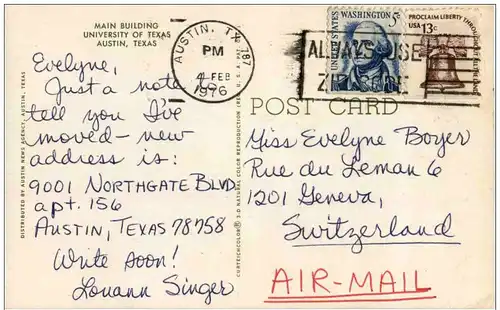 MAIN BUILDING
UNIVERSITY OF TEXAS
AUSTIN, TEXAS
Evelyne,
Just a note
tell you I've
moved - new
address is:
9001 NORTHGATE BLVD.
apt. 156
AUSTIN, TEXAS 78758
Write soon!
Louann Singer
DISTRIBUTED BY AUSTIN NEWS AGENCY, AUSTIN, TEXAS
CURTEICHCOLOR® 3-D NATURAL COLOR REPRODUCTION
AUSTIN, TX 787
PM
FEB
1976
UNITED STATES
WASHINGTON 5c
PROCLAIM LIBERTY THROUGHOUT
USA 13c
ALWAYS USE
ZIP CODE
POST CARD
Miss Evelyne Boyer
Rue du Leman 6
1201 Geneva,
Switzerland
AIR-MAIL